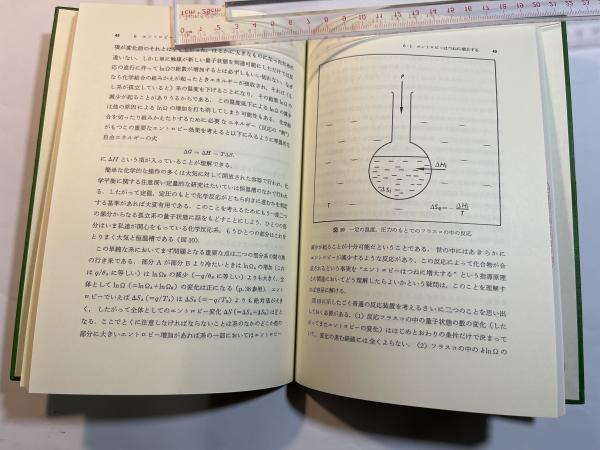 48　6 エントロピー
違いない．しかし単に無秩序が新しい量子状態を到達可能にしただけでは反
応の進行に伴って lnΩの総数が増加するとは必ずしもいい切れない．なぜ
なら化学結合の組みかえが起ったときエネルギーが吸収され，それは（も
し系が孤立していると）系の温度を下げることになり，その結果 lnΩの
減少が起ることがありうるからである．この温度低下による lnΩの減少
は他の原因による lnΩの増加を打ち消してしまう可能性もある．化学結
合を切ったり組みかえたりするために必要なエネルギー（反応の“熱”）
がもつこの重要なエントロピー効果を考えると以下にみるように等温的な
自由エネルギーの式
ΔG = ΔH − TΔS．
に ΔH という項が入っていることが理解できる．
簡単な化学的な操作の多くは大気に対して開放された容器で行われ，化
学平衡に関する注意深い定量的な研究はたいていは恒温槽のなかで行われ
る．したがって定温，定圧のもとで化学反応がどちら向きに進むかを判定
する基準があれば大変有用である．このことを考えるためにもう一度二つ
の部分からなる孤立系の量子状態に話をもどすことにしよう．ひとつの部
分はいま私達が関心をもっている化学反応系，もうひとつの部分はこれを
とりまく大気と恒温槽である（図 10）．
この単純な系においてまず問題となる重要な点は二つの部分系の間の熱
の行き来である．部分 A が部分 B より冷たいときは lnΩₐの増加（これ
は q/θₐ に等しい）は lnΩ_B の減少（−q/θ_B に等しい）よりも大きく，全
体として lnΩ（=lnΩₐ+lnΩ_B）の変化は正になる（p.36参照）．エント
ロピーでいえば ΔSₐ（=q/Tₐ）は ΔS_B（=−q/T_B）よりも絶対値が大き
く，したがって全体としてのエントロピー変化 ΔS（=ΔSₐ+ΔS_B）は正と
なる．ここでとくに注意しなければならないことは系のなかのどこか他の
部分に大きいエントロピー増加があれば系の一部においてはエントロピー
6・1 エントロピーはつねに増大する　49
P
ΔHᵢ
ΔSᵢ
T
ΔSₑ = − ΔHᵢ/T
図 10 一定の温度，圧力のもとでのフラスコの中の反応
減少が起ることが十分可能だということである．世の中にはあきらかに
エントロピーが減少するような反応があり，この反応によって化学物が合
成されるという事実を“エントロピーはつねに増大する”という指導原理
との関連においてどう理解したらよいかという疑問は，このことを理解す
れば容易に解ける．
図 10 に示したごく普通の反応装置を考えるさいに二つのことを思い出
しておく必要がある．（1）反応フラスコの中の量子状態の数の変化（した
がってまたエントロピーの変化）ははじめとおわりの条件だけで決まって
いて，変化の進む経路には全くよらない．（2）フラスコの中の klnΩの